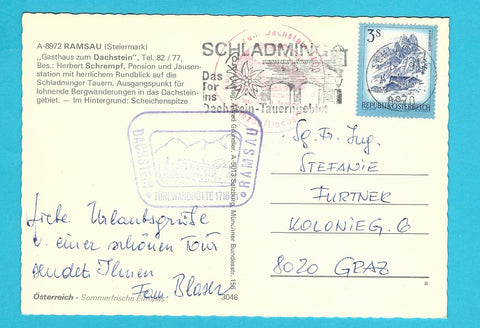 A-8972 RAMSAU (Steiermark)
„Gasthaus zum Dachstein", Tel. 82 / 77,
Bes.: Herbert Schrempf, Pension und Jausen-
station mit herrlichem Rundblick auf die
Schladminger Tauern. Ausgangspunkt für
lohnende Bergwanderungen in das Dachstein-
gebiet. — Im Hintergrund: Scheichenspitze
SCHLADMING
Das
Tor
ins
Dachstein-Tauerngebiet
3S
REPUBLIK ÖSTERREICH
DACHSTEIN
RAMSAU
TÜRLWANDHÜTTE 1716
A-5013 Salzburg, Münchner Bundesstr. 156
Liebe Urlaubsgrüße
v. einer schönen Tour
sendet Ihnen
Fam. Blaser
Sg. Fr. Ing.
STEFANIE
FURTNER
KOLONIEG. 6
8020 GRAZ
Österreich - Sommerfrische Europas
3046